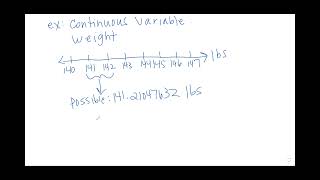 ex: Continuous Variable:
weight
lbs
140 141 142 143 144 145 146 147
possible: 141.21047632 lbs